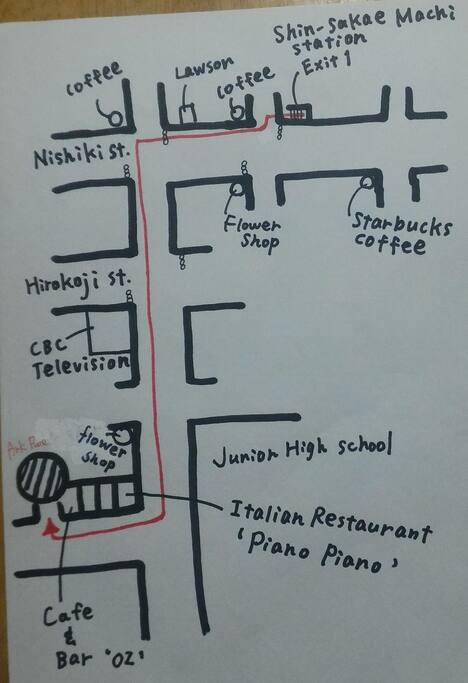 Shin-Sakae Machi
station
Exit 1
coffee
Lawson
coffee
Nishiki st.
Flower
Shop
Starbucks
coffee
Hirokoji st.
CBC
Television
flower
shop
Junior High school
Italian Restaurant
'Piano Piano'
Cafe
&
Bar 'OZ'